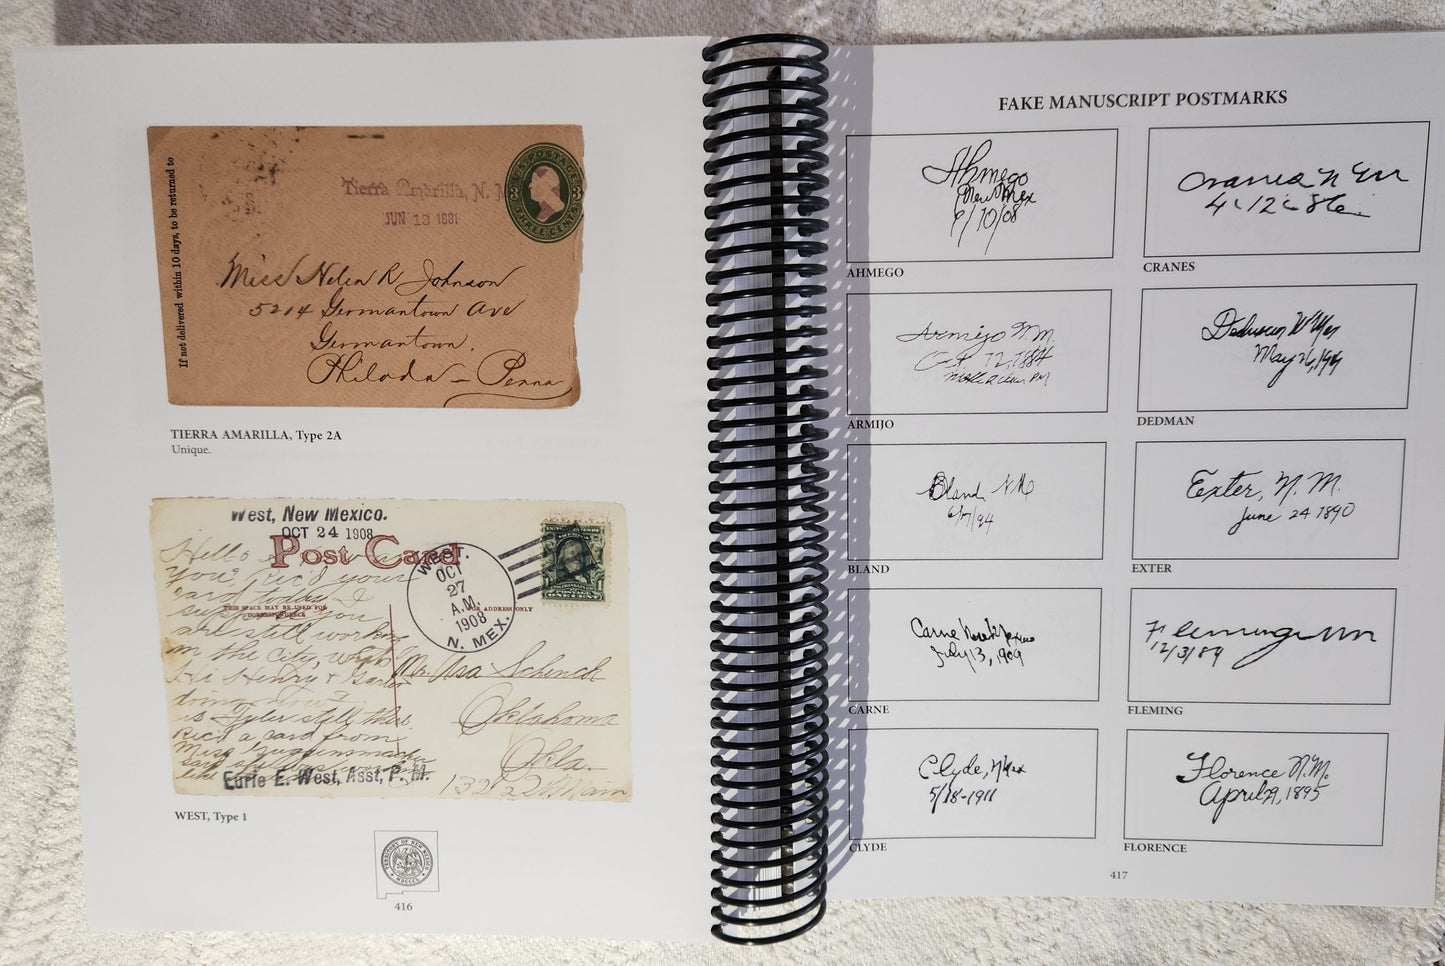 If not delivered within 10 days, to be returned to
U.S. POSTAGE
3 3
THREE CENTS
Tierra Amarilla, N. M
JUN 13 1881
Miss Helen R Johnson
5214 Germantown Ave
Germantown.
Philada - Penna
TIERRA AMARILLA, Type 2A
Unique.
West, New Mexico.
OCT 24 1908
Post Card
THIS SPACE MAY BE USED FOR
CORRESPONDENCE
FOR ADDRESS ONLY
WEST.
OCT
27
A.M.
1908
N. MEX.
Hello
you? Rec'd your
card today. I
suppose you
are still working
in the city,
Hi Henry &
doing
is Tyler still there
Rec'd a card from
Miss
Mr. Asa Schenck
Oklahoma
Okla.
1322 W. Main
Eurie E. West, Asst, P. M.
WEST, Type 1
TERRITORY OF NEW MEXICO
MDCCCL
416
FAKE MANUSCRIPT POSTMARKS
Ahmego
New Mex
9/10/08
AHMEGO
Cranes N Mex
4-12-86
CRANES
Armijo N.M.
12, 1884
PM
ARMIJO
Dedman N Mex
May 26, 19
DEDMAN
Bland N M
6/7/94
BLAND
Exter, N. M.
June 24 1890
EXTER
Carne New Mexico
July 13, 1909
CARNE
Fleming N M
12/3/89
FLEMING
Clyde, N Mex
5/18-1911
CLYDE
Florence N. M.
April 29, 1895
FLORENCE
417